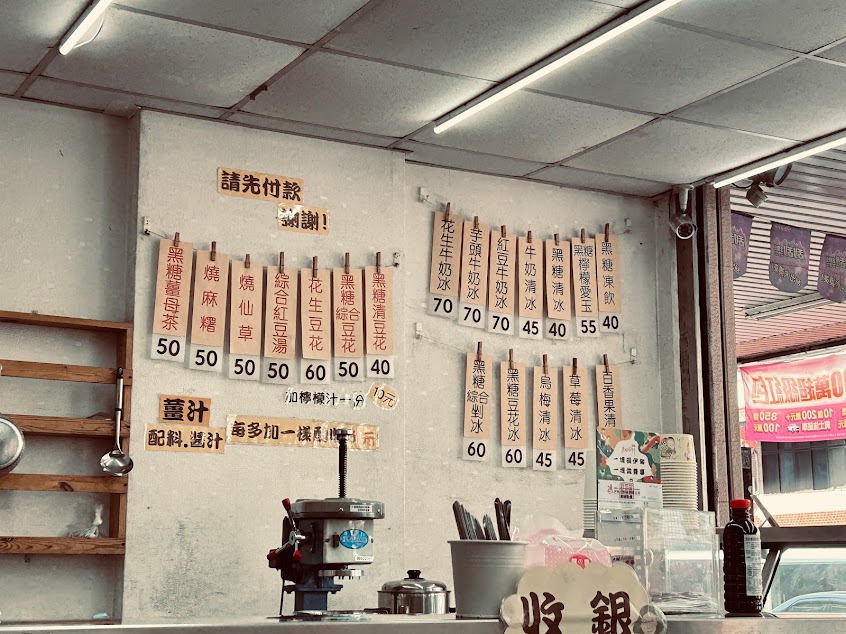 請先付款
謝謝!
黑糖薑母茶
50
燒麻糬
50
燒仙草
50
綜合紅豆湯
50
花生豆花
60
黑糖綜合豆花
50
黑糖清豆花
40
花生牛奶冰
70
芋頭牛奶冰
70
紅豆牛奶冰
70
牛奶清冰
45
黑糖清冰
40
黑糖檸檬愛玉
55
黑糖凍飲
40
黑糖綜合剉冰
60
黑糖豆花冰
60
烏梅清冰
45
草莓清冰
45
百香果清
加檸檬汁一分
10元
薑汁
配料.醬汁
每多加一樣
元
收銀